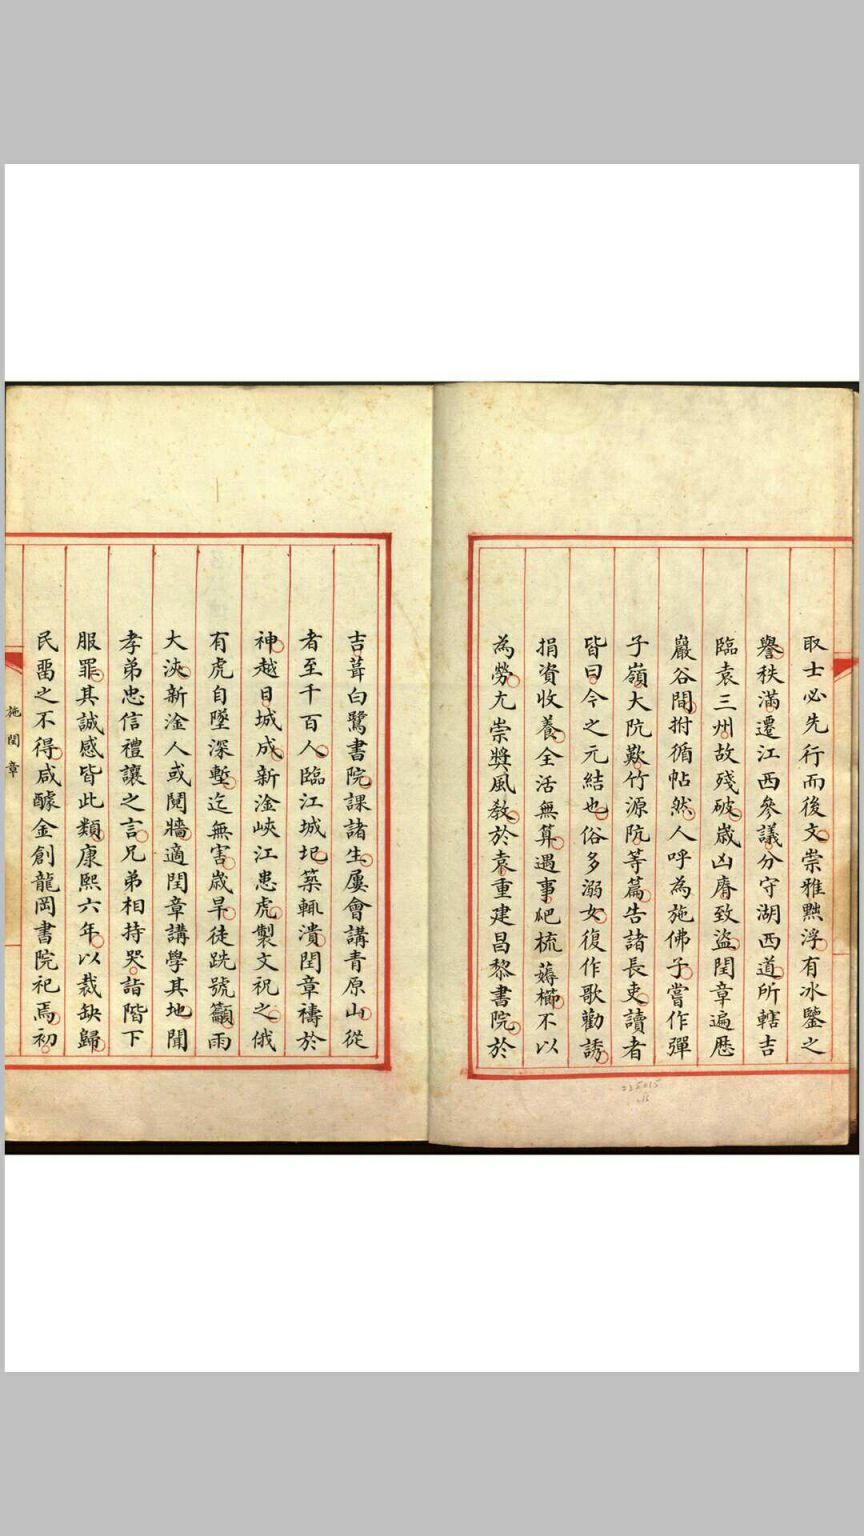 取士必先行而後文崇雅黜浮有冰鑒之
譽秩滿遷江西參議分守湖西道所轄吉
臨袁三州故殘破歲凶廥致盜閏章遍歷
巖谷間拊循帖然人呼為施佛子嘗作彈
子嶺大阬歎竹源阬等篇告諸長吏讀者
皆曰今之元結也俗多溺女復作歌勸誘
捐資收養全活無算遇事爬梳薅櫛不以
為勞尤崇獎風教於袁重建昌黎書院於
吉葺白鷺書院課諸生屢會講青原山從
者至千百人臨江城圮築輒潰閏章禱於
神越日城成新淦峽江患虎製文祝之俄
有虎自墜深塹迄無害歲旱徒跣號籲雨
大浹新淦人或鬩牆適閏章講學其地聞
孝弟忠信禮讓之言兄弟相持哭詣階下
服罪其誠感皆此類康熙六年以裁缺歸
民畱之不得咸醵金創龍岡書院祀焉初
施閏章